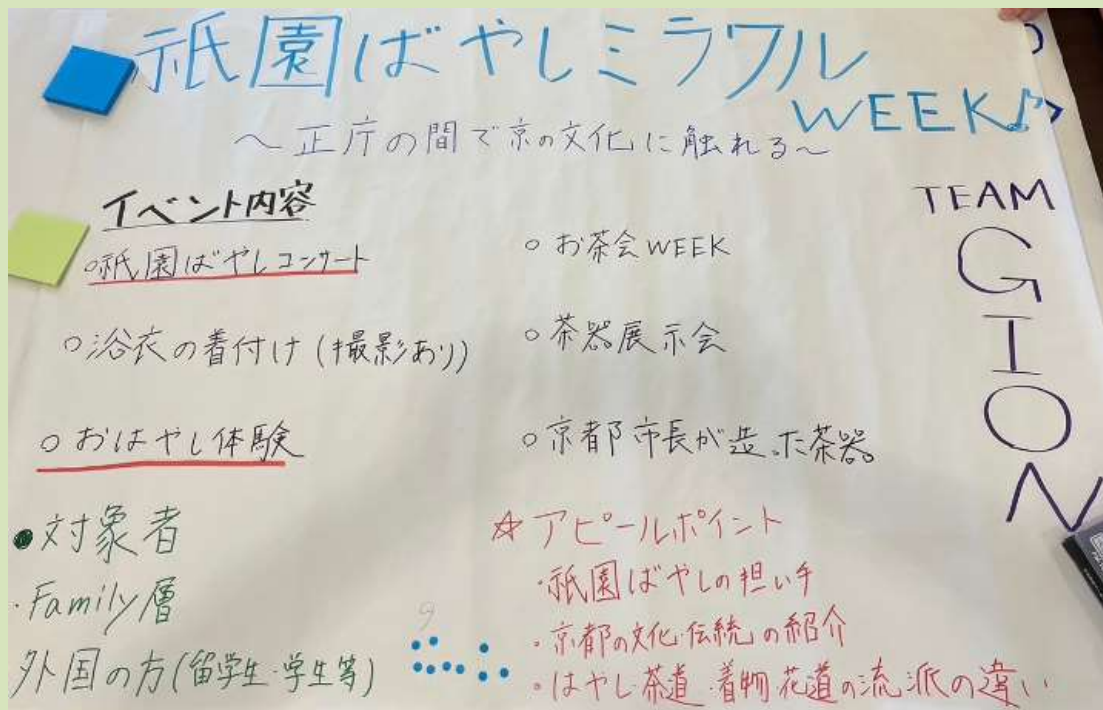 祇園ばやしミラワル
WEEK♪
〜正庁の間で京の文化に触れる〜
TEAM
GION
イベント内容
○祇園ばやしコンサート
○浴衣の着付け(撮影あり)
○おはやし体験
○お茶会WEEK
○茶器展示会
○京都市長が造った茶器。
●対象者
・Family層
外国の方(留学生・学生等)
9
☆アピールポイント
・祇園ばやしの担い手
・京都の文化・伝統の紹介
・はやし・茶道・着物・花道の流派の違い